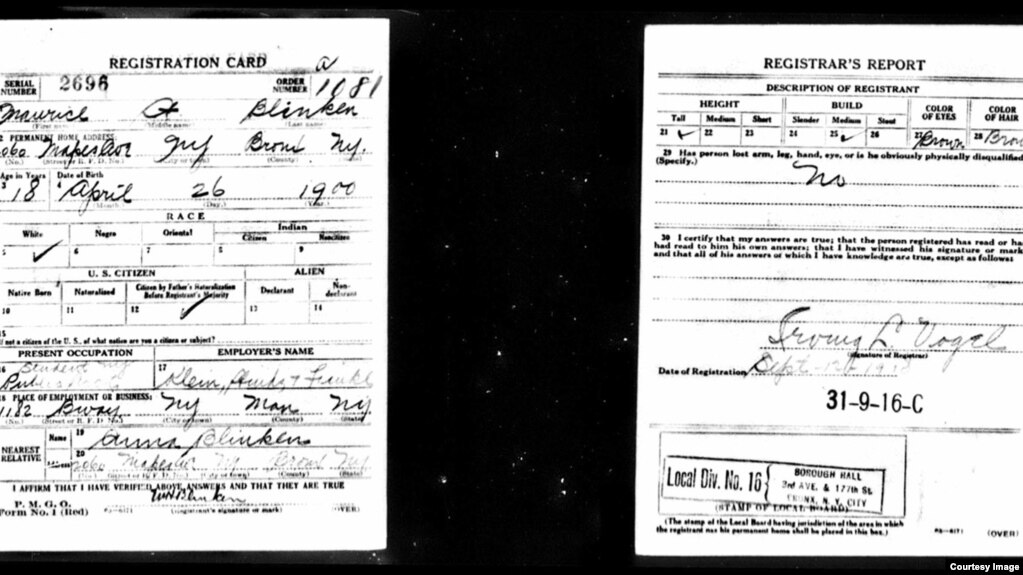 REGISTRATION CARD
a
SERIAL NUMBER 2696 ORDER NUMBER 1081
Maurice H Blinken
(First name) (Middle name) (Last name)
2 PERMANENT HOME ADDRESS:
2060 NY Bronx NY.
(No.) (Street or R. F. D. No.) (City or town) (County) (State)
Age in Years Date of Birth
3 18 4 April 26 1900
(Month) (Day.) (Year.)
RACE
White Negro Oriental Indian
Citizen Noncitizen
5 ✓ 6 7 8 9
U. S. CITIZEN ALIEN
Native Born Naturalized Citizen by Father's Naturalization Before Registrant's Majority Declarant Non-declarant
10 11 12 ✓ 13 14
15
If not a citizen of the U. S., of what nation are you a citizen or subject?
PRESENT OCCUPATION EMPLOYER'S NAME
16 Student 17
Public Klein,
18 PLACE OF EMPLOYMENT OR BUSINESS:
1182 Bway NY Man NY
(No.) (Street or R. F. D. No.) (City or town) (County) (State)
NEAREST RELATIVE Name 19 Anna Blinken
20 2060 NY Bronx NY
(No.) (Street or R. F. D. No.) (City or town) (County) (State)
I AFFIRM THAT I HAVE VERIFIED ABOVE ANSWERS AND THAT THEY ARE TRUE
P. M. G. O.
Form No. 1 (Red) MHBlinken
(Registrant's signature or mark) (OVER)
REGISTRAR'S REPORT
DESCRIPTION OF REGISTRANT
HEIGHT BUILD COLOR OF EYES COLOR OF HAIR
Tall Medium Short Slender Medium Stout
21 ✓ 22 23 24 25 ✓ 26 27 Brown 28 Brow
29 Has person lost arm, leg, hand, eye, or is he obviously physically disqualified
(Specify.) No
30 I certify that my answers are true; that the person registered has read or ha
had read to him his own answers; that I have witnessed his signature or mark
and that all of his answers of which I have knowledge are true, except as follows:
Irving L Vogel
(Signature of Registrar)
Date of Registration Sept 12
31-9-16-C
Local Div. No. 16
BOROUGH HALL
3rd AVE. & 177th St.
BRONX, N. Y. CITY
(STAMP OF LOCAL BOARD)
(The stamp of the Local Board having jurisdiction of the area in which
the registrant has his permanent home shall be placed in this box.)
(OVER)
Courtesy Image